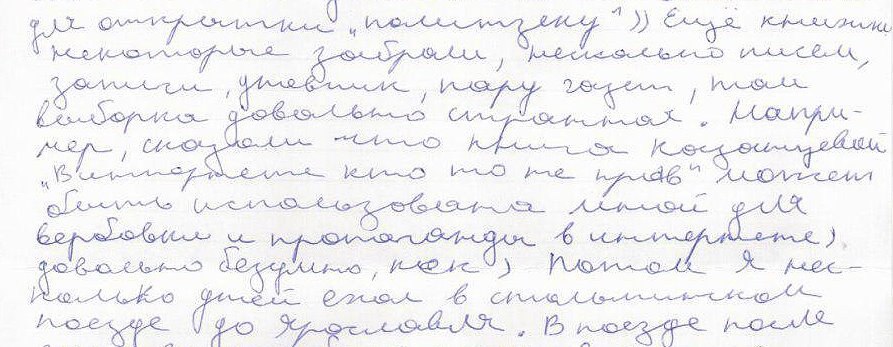 для открытки „политзеку“)) Ещё книжки
некоторые забрали, несколько писем,
записи, дневник, пару газет, там
выборка довольно странная. Напри-
мер, сказали что книга Казанцевой
„В интернете кто то не прав" может
быть использована мной для
вербовки и пропаганды в интернете)
довольно безумно, как) Потом я нес-
колько дней ехал в столыпинском
поезде до Ярославля. В поезде после